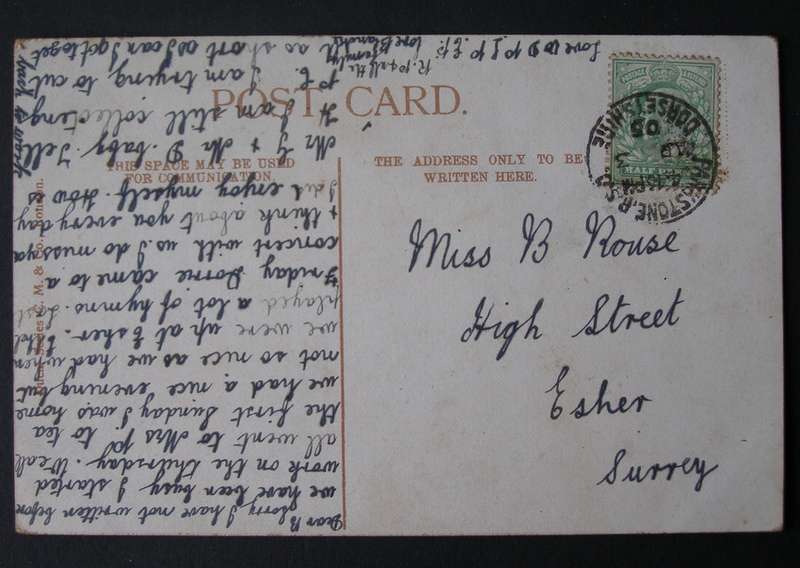 POST CARD.
THIS SPACE MAY BE USED
FOR COMMUNICATION.
THE ADDRESS ONLY TO BE
WRITTEN HERE.
HALF PENNY
PARKSTONE. R.S.O
DORSETSHIRE
05
Miss B Rouse
High Street
Esher
Surrey
Dear B
Sorry I have not written before
we have been busy I started
work on the Thursday. We all
all went to Mrs to tea
the first Sunday I was home
we had a nice evening but
not so nice as we had when
we were up at Esher. Ethel
played a lot of hymns. Last
Friday came to a
concert with us I do miss ya
& think about you every day
I did enjoy myself. How is
Mr & Mr D. baby. Tell
H I am still collecting
p c. I am trying to cut
it as short as I can I got to get
back to work
Love to
R. P & all the
family
love Blanche